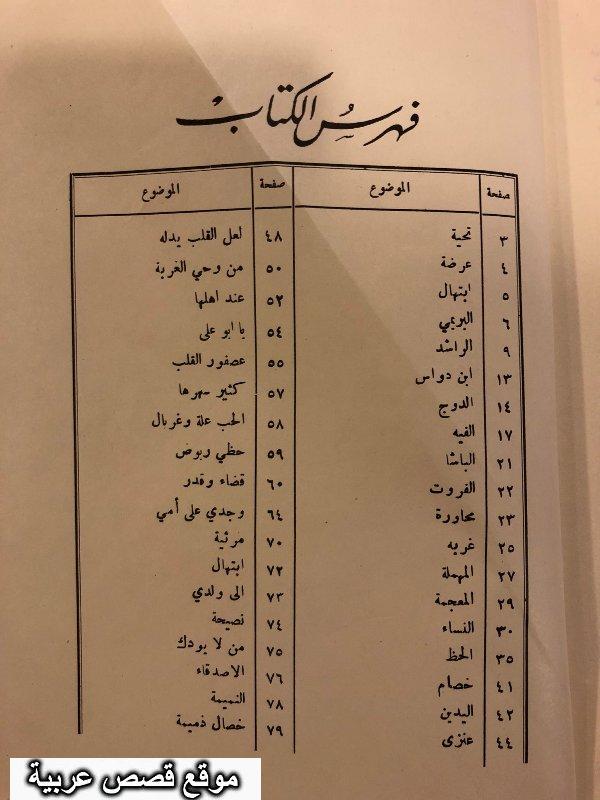 فهرس الكتاب
صفحة الموضوع
٣ تحية
٤ عرضة
٥ ابتهال
٦ البريمي
٩ الراشد
١٣ ابن دواس
١٤ الدوج
١٧ الفيه
٢١ الباشا
٢٢ الفروت
٢٣ محاورة
٢٥ غربه
٢٧ المهملة
٢٩ المعجمة
٣٠ النساء
٣٥ الحظ
٤١ خصام
٤٢ اليدين
٤٤ عنزى
صفحة الموضوع
٤٨ لعل القلب يدله
٥٠ من وحي الغربة
٥٢ عند اهلها
٥٤ يا ابو على
٥٥ عصفور القلب
٥٧ كثير سهرها
٥٨ الحب علة وغربال
٥٩ حظي ربوض
٦٠ قضاء وقدر
٦٤ وجدي على أمي
٧٠ مرثية
٧٢ ابتهال
٧٣ الى ولدي
٧٤ نصيحة
٧٥ من لا يودك
٧٦ الاصدقاء
٧٨ النميمة
٧٩ خصال ذميمة
موقع قصص عربية